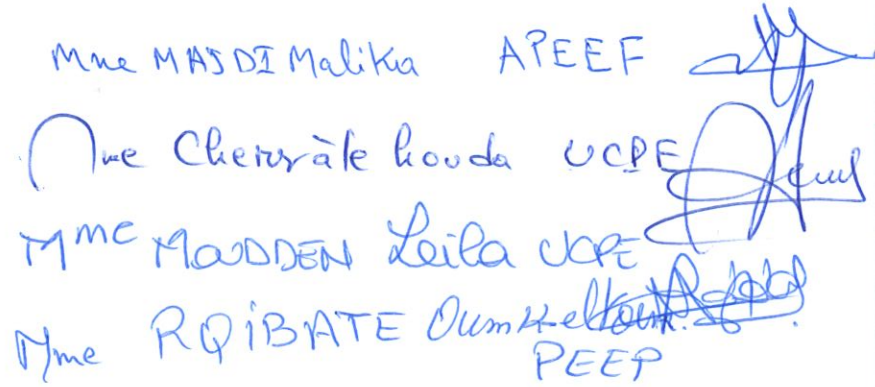 Mme MAJDI Malika APEEF
Mme houda UCPE
Mme MOUDDEN Leila UCPE
Mme RQIBATE Oumkeltoum
PEEP